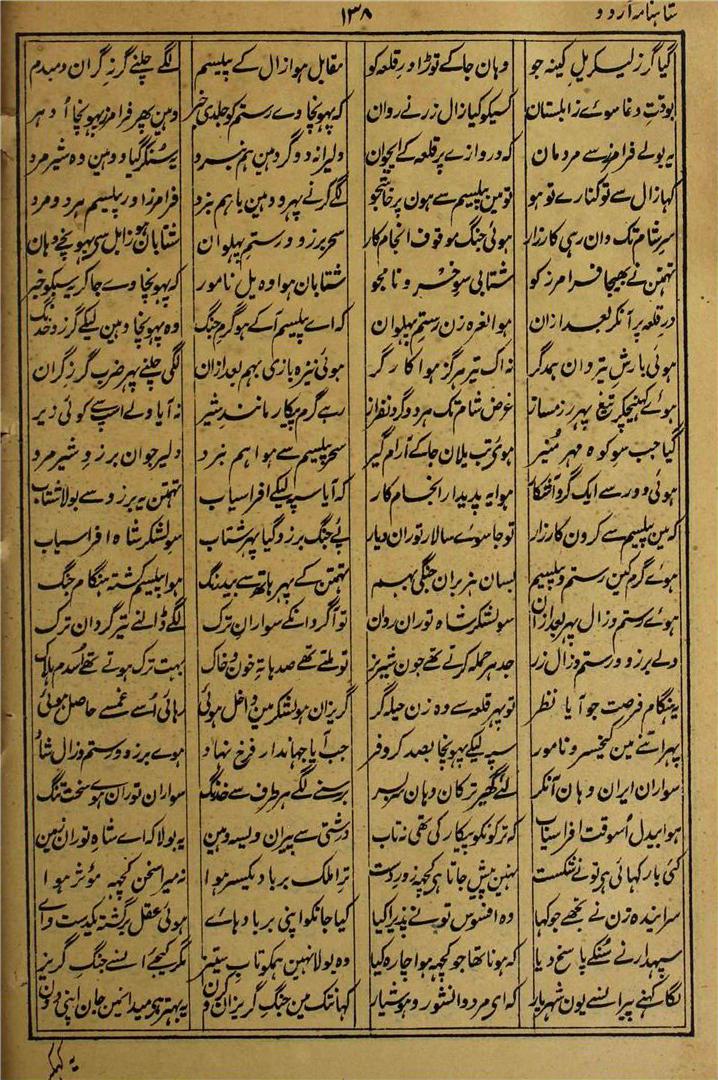 شاہنامہ اردو
۱۳۸
گیا گرز لیکر یل کینہ جو وہان جاکے توڑا در قلعہ کو مقابل ہوا زال کے پیلسم لگے چلنے گرز گران دمبدم
بوقت دغا سوئے زابلستان کسیکو کیا زال زر نے روان کہ پہونچا وے رستم کو جلدی خبر وہین پھر فرامرز پہونچا اُدہر
یہ بولے فرامرز سے مردمان کہ دروازے پر قلعہ کے ایجوان دلیرانہ دو گرد ہین ہم نبرد یہ سنکر گیا وہین وہ شیر مرد
کہا زال سے تو کنارے تو ہو تو مین پیلسم سے ہون پرخاشجو لگے کرنے پہر وہین باہم نبرد فرامرز اور پیلسم ہر دو مرد
سر شام تک وان رہی کارزار ہوئی جنگ موقوف انجام کار سحر برزو و رستم پہلوان شتابان ہو زابل سے پہونچے وہان
تہمتن نے بھیجا فرامرز کو شتابی سو خسرو نامجو شتابان ہوا وہ یل نامور کہ پہونچا وے جا کر یہ سبکو خبر
در قلعہ پر آنکر بعد ازان ہوا نعرہ زن رستم پہلوان کہ اے پیلسم آکے ہو گرم جنگ وہ پہونچا وہین لیکے گرز و خدنگ
ہوئی بارش تیر وان ہمدگر نہ اک تیر ہرگز ہوا کارگر ہوئی نیزہ بازی بہم بعد ازان لگی چلنے پہر ضرب گرز گران
ہوئے کھینچکر تیغ پہر رزمساز غرض شام تک ہر دو گرد نفراز رہے گرم پیکار مانند شیر نہ آیا ولے اپسے کوئی زیر
گیا جب سو کوہ مہر منیر ہوئی تب یلان جاکے آرام گیر سحر پیلسم سے ہوا ہم نبرد دلیر جوان برزو شیر مرد
ہوئی دور سے ایک گرد آشکار ہوا یہ پدیدار انجام کار کہ آیا سپہ لیکے افراسیاب تہمتن یہ برزو سے بولا شتاب
کہ مین پیلسم سے کرون کارزار تو جا سوے سالار توران دیار پئے جنگ برزو گیا پہر شتاب سو لشکر شاہ افراسیاب
ہوے گرم کین رستم و پیلسم بسان ہزبران جنگی بہم تہمتن کے پہر ہاتھ سے بیدرنگ ہوا پیلسم کشتہ ہنگام جنگ
ہوے رستم و زال پہر بعد ازان سو لشکر شاہ توران روان تو آ کر دانکے سواران ترک لگے ڈالنے تیر گردان ترک
ولے برزو و رستم و زال زر جدہر حملہ کرتے تھے جون شیر نر تو ملتے تھے صدہا تہ خون و خاک بہت ترک ہوتے تھے اُسدم ہلاک
یہ ہنگام فرصت جو آیا نظر تو پہر قلعہ سے وہ زن حیلہ گر گریزان ہو لشکر مین داخل ہوئی رہائی اُسے غمسے حاصل ہوئی
پہر اتنے مین کیخسرو نامور سپہ لیکے پہونچا بصد کروفر جب آیا جہاندار فرخ نہاد ہوے برزو و رستم و زال شاد
سواران ایران وہان آنکر لئے گھیر ترکان وہان بسر برسنے لگے ہر طرف سے خدنگ سواران توران ہوے سخت تنگ
ہوا بیدل اُسوقت افراسیاب کہ ترکونکو پیکار کی تھی نہ تاب درشتی سے پیران ویسہ وہین یہ بولا کہ اے شاہ توران زمین
کئی بار کہائی ہی تو نے شکست نہین پیش جاتا ہی کچھ زور دست ترا ملک برباد یکسر ہوا نہ میرا سخن کچھہ مؤثر ہوا
سرایندہ زن نے تجھے جو کہا وہ افسوس تونے پذیرا کیا کیا جانکو اپنی برباد ہائے ہوئی عقل برگشتہ یکدست وائے
سپہدار نے سنکے پاسخ دیا کہ ہونا تھا جو کچہہ ہوا چارہ کیا وہ بولا نہین ہمکو تاب ستیز مگر کیجے اسنے جنگ گریز
لگا کہنے پیران سے یون شہریار کہ اے مرد دانشور و ہوشیار کہانتک مین جنگ گریزان کرون یہ بہتر ہی میدانمین جان اپنی دون
یہ کہکر